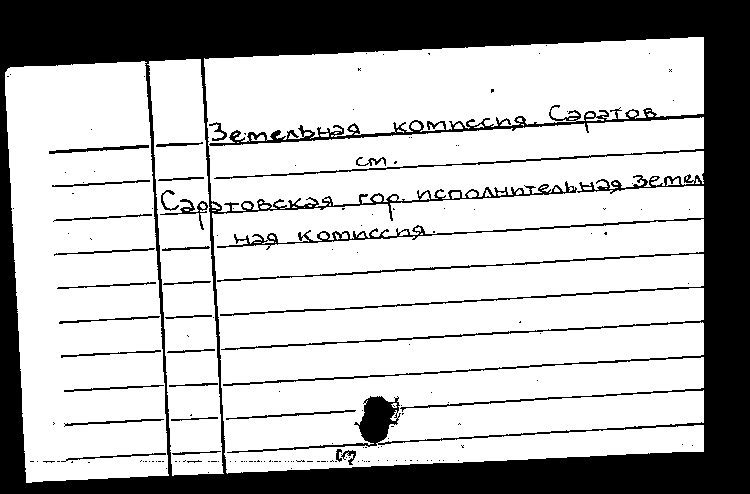 Земельная комиссия. Саратов.
см.
Саратовская гор. исполнительная земель
ная комиссия.